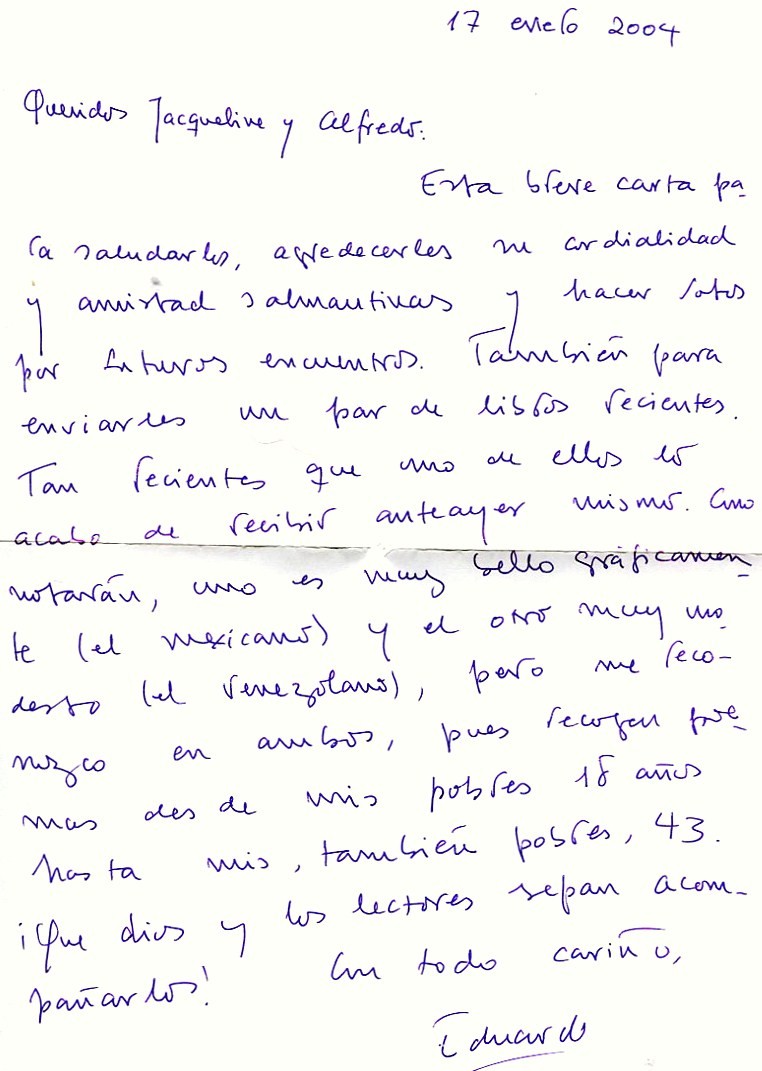 17 enero 2004
Queridos Jacqueline y Alfredo:
Esta breve carta pa-
ra saludarlos, agradecerles su cordialidad
y amistad salmantinas y hacer votos
por futuros encuentros. También para
enviarles un par de libros recientes.
Tan recientes que uno de ellos lo
acabo de recibir anteayer mismo. Como
notarán, uno es muy bello gráficamen-
te (el mexicano) y el otro muy mo-
desto (el venezolano), pero me reco-
nozco en ambos, pues recogen poe-
mas desde mis pobres 18 años
hasta mis, también pobres, 43.
¡Que dios y los lectores sepan acom-
pañarlos! Con todo cariño,
Eduardo